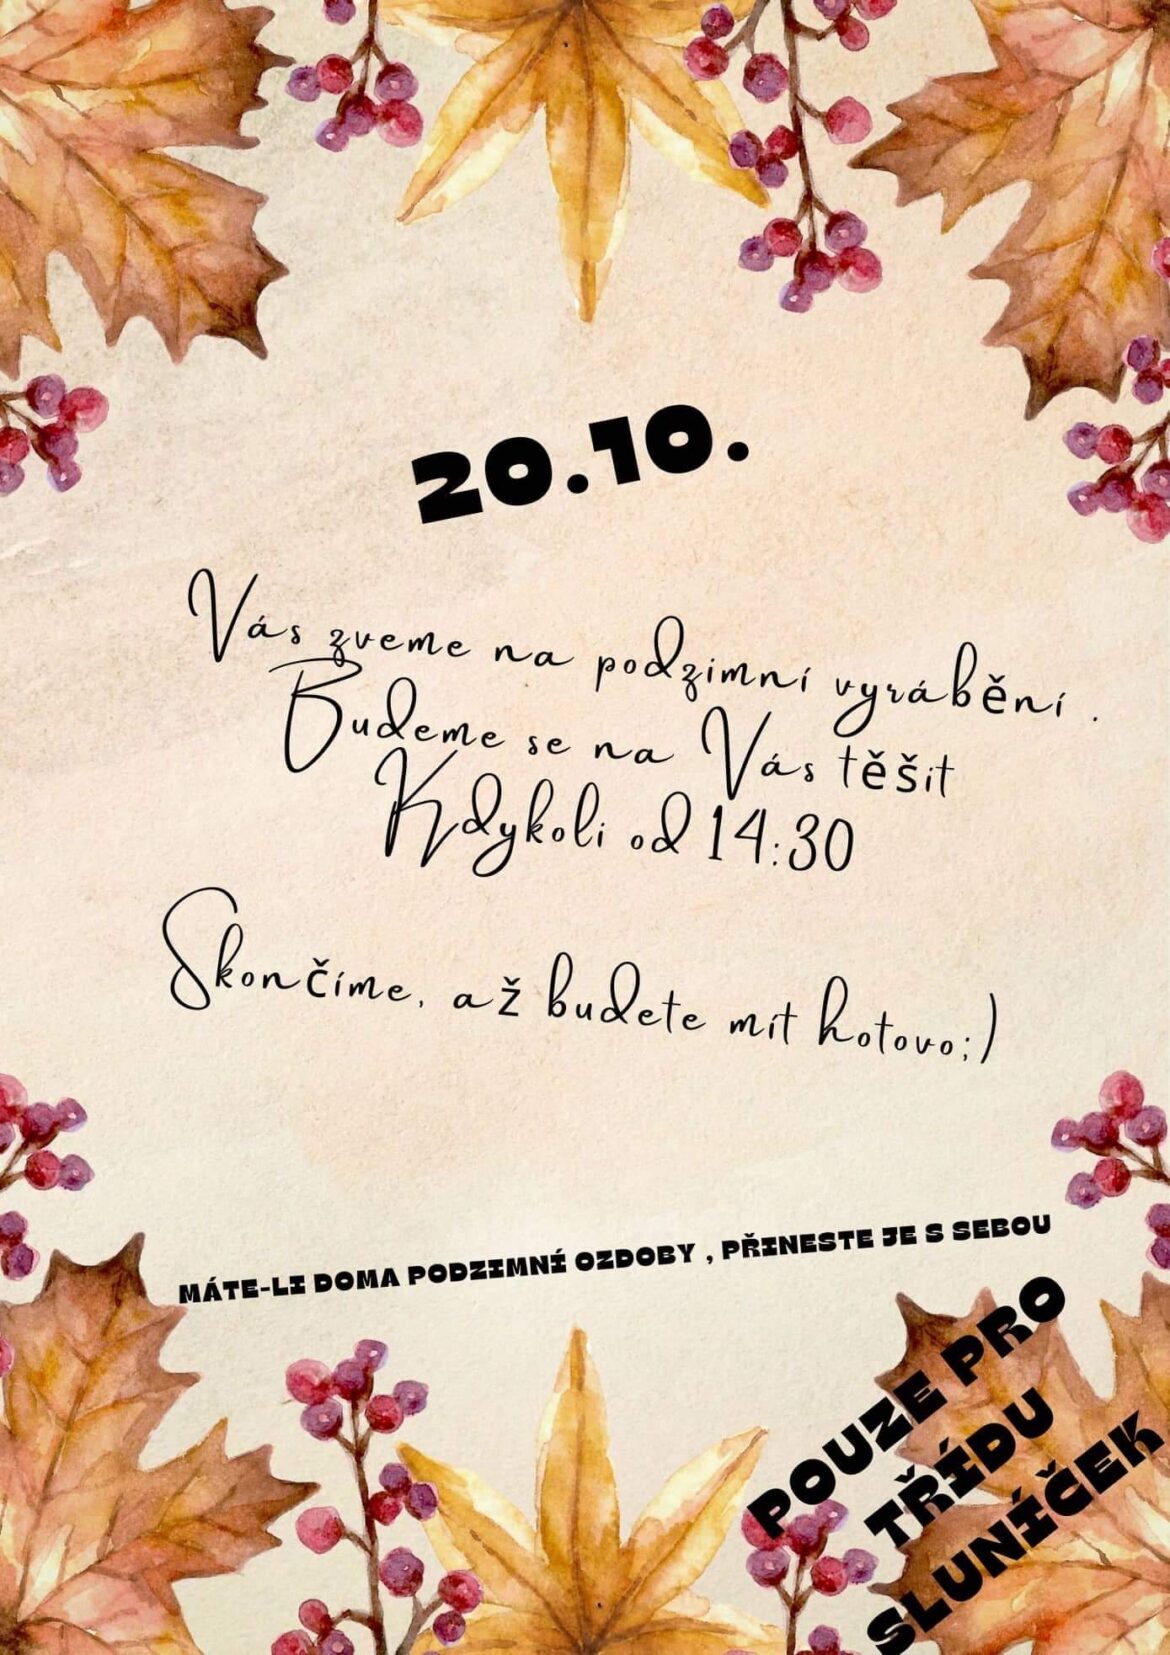 20.10.
Vás zveme na podzimní vyrábění .
Budeme se na Vás těšit
Kdykoli od 14:30
Skončíme, až budete mít hotovo;)
MÁTE-LI DOMA PODZIMNÍ OZDOBY , PŘINESTE JE S SEBOU
POUZE PRO
TŘÍDU
SLUNÍČEK